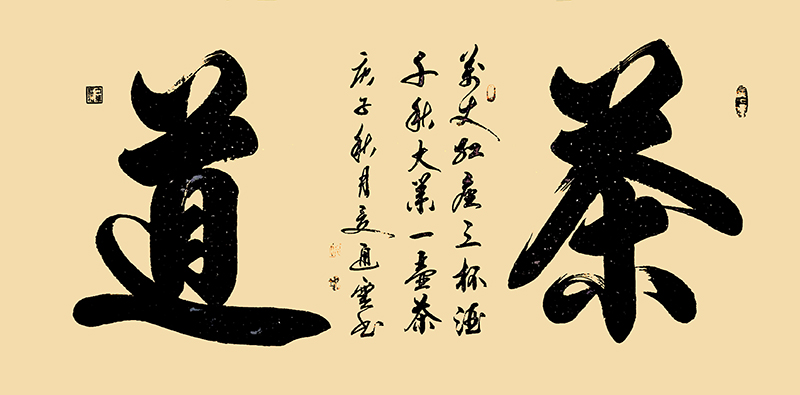 茶
萬丈紅塵三杯酒
千秋大業一壺茶
庚子秋月夏通雲書
道